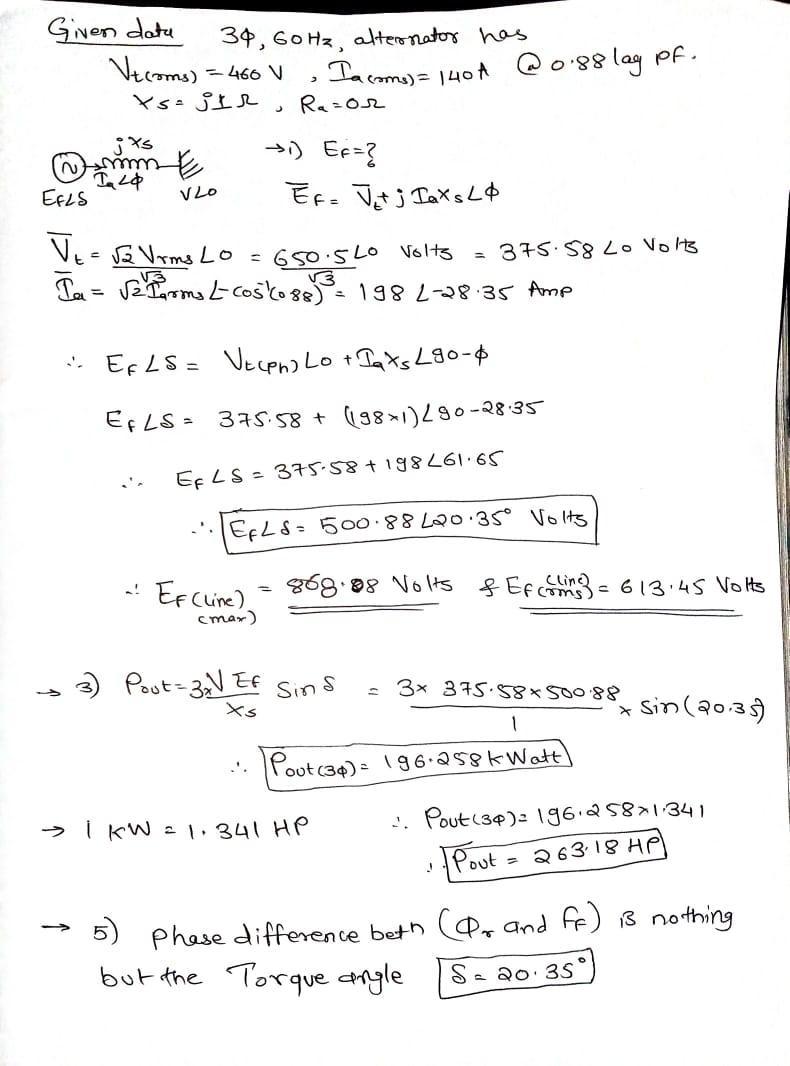 Given data 3Φ, 60Hz, alternator has
Vt(rms) = 460 V , Ia(rms) = 140A @ 0.88 lag pf.
Xs = j1Ω , Ra = 0Ω
jXs
Ia∠Φ
Ef∠δ V∠0
→ 1) Ef = ?
Ēf = V̄t + j IaXs∠Φ
V̄t = √2 Vrms∠0 / √3 = 650.5∠0 / √3 Volts = 375.58∠0 Volts
Īa = √2 Iarms ∠-cos⁻¹(0.88) = 198 ∠-28.35 Amp
∴ Ef∠δ = Vt(ph)∠0 + IaXs∠90-Φ
Ef∠δ = 375.58 + (198×1)∠90-28.35
∴ Ef∠δ = 375.58 + 198∠61.65
∴ Ef∠δ = 500.88∠20.35° Volts
∴ Ef(line)(max) = 868.08 Volts & Ef(line)(rms) = 613.45 Volts
→ 3) Pout = 3×V Ef / Xs Sin δ = 3×375.58×500.88 / 1 × Sin(20.35)
∴ Pout(3Φ) = 196.258 kWatt
→ 1 KW = 1.341 HP ∴ Pout(3Φ) = 196.258×1.341
∴ Pout = 263.18 HP
→ 5) Phase difference betn (Φr and Ff) is nothing
but the Torque angle δ = 20.35°